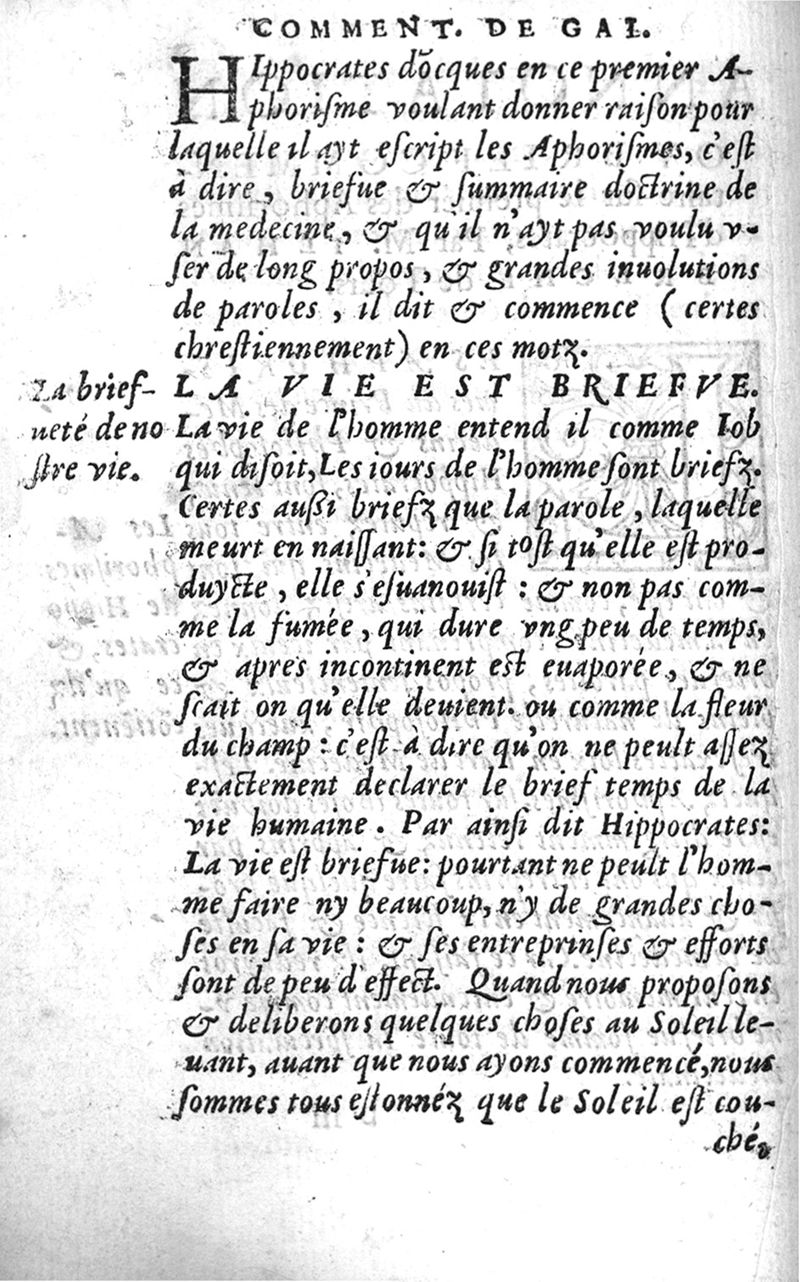 COMMENT. DE GAL.
HIppocrates dõcques en ce premier A-
phoriſme voulant donner raiſon pour
laquelle il ayt eſcript les Aphoriſmes, c'eſt
à dire, briefue & ſummaire doctrine de
la medecine, & qu'il n'ayt pas voulu v-
ſer de long propos, & grandes inuolutions
de paroles, il dit & commence (certes
chreſtiennement) en ces motz.
La brief-
ueté de no
ſtre vie.
LA VIE EST BRIEFVE.
La vie de l'homme entend il comme Iob
qui diſoit, Les iours de l'homme ſont briefz.
Certes auſſi briefz que la parole, laquelle
meurt en naiſſant: & ſi toſt qu'elle eſt pro-
duycte, elle s'eſuanouiſt: & non pas com-
me la fumée, qui dure vng peu de temps,
& apres incontinent eſt euaporée, & ne
ſcait on qu'elle deuient. ou comme la fleur
du champ: c'eſt à dire qu'on ne peult aſſez
exactement declarer le brief temps de la
vie humaine. Par ainſi dit Hippocrates:
La vie eſt briefue: pourtant ne peult l'hom-
me faire ny beaucoup, n'y de grandes cho-
ſes en ſa vie: & ſes entreprinſes & efforts
ſont de peu d'effect. Quand nous propoſons
& deliberons quelques choſes au Soleil le-
uant, auant que nous ayons commencé, nous
ſommes tous eſtonnéz que le Soleil eſt cou-
ché,